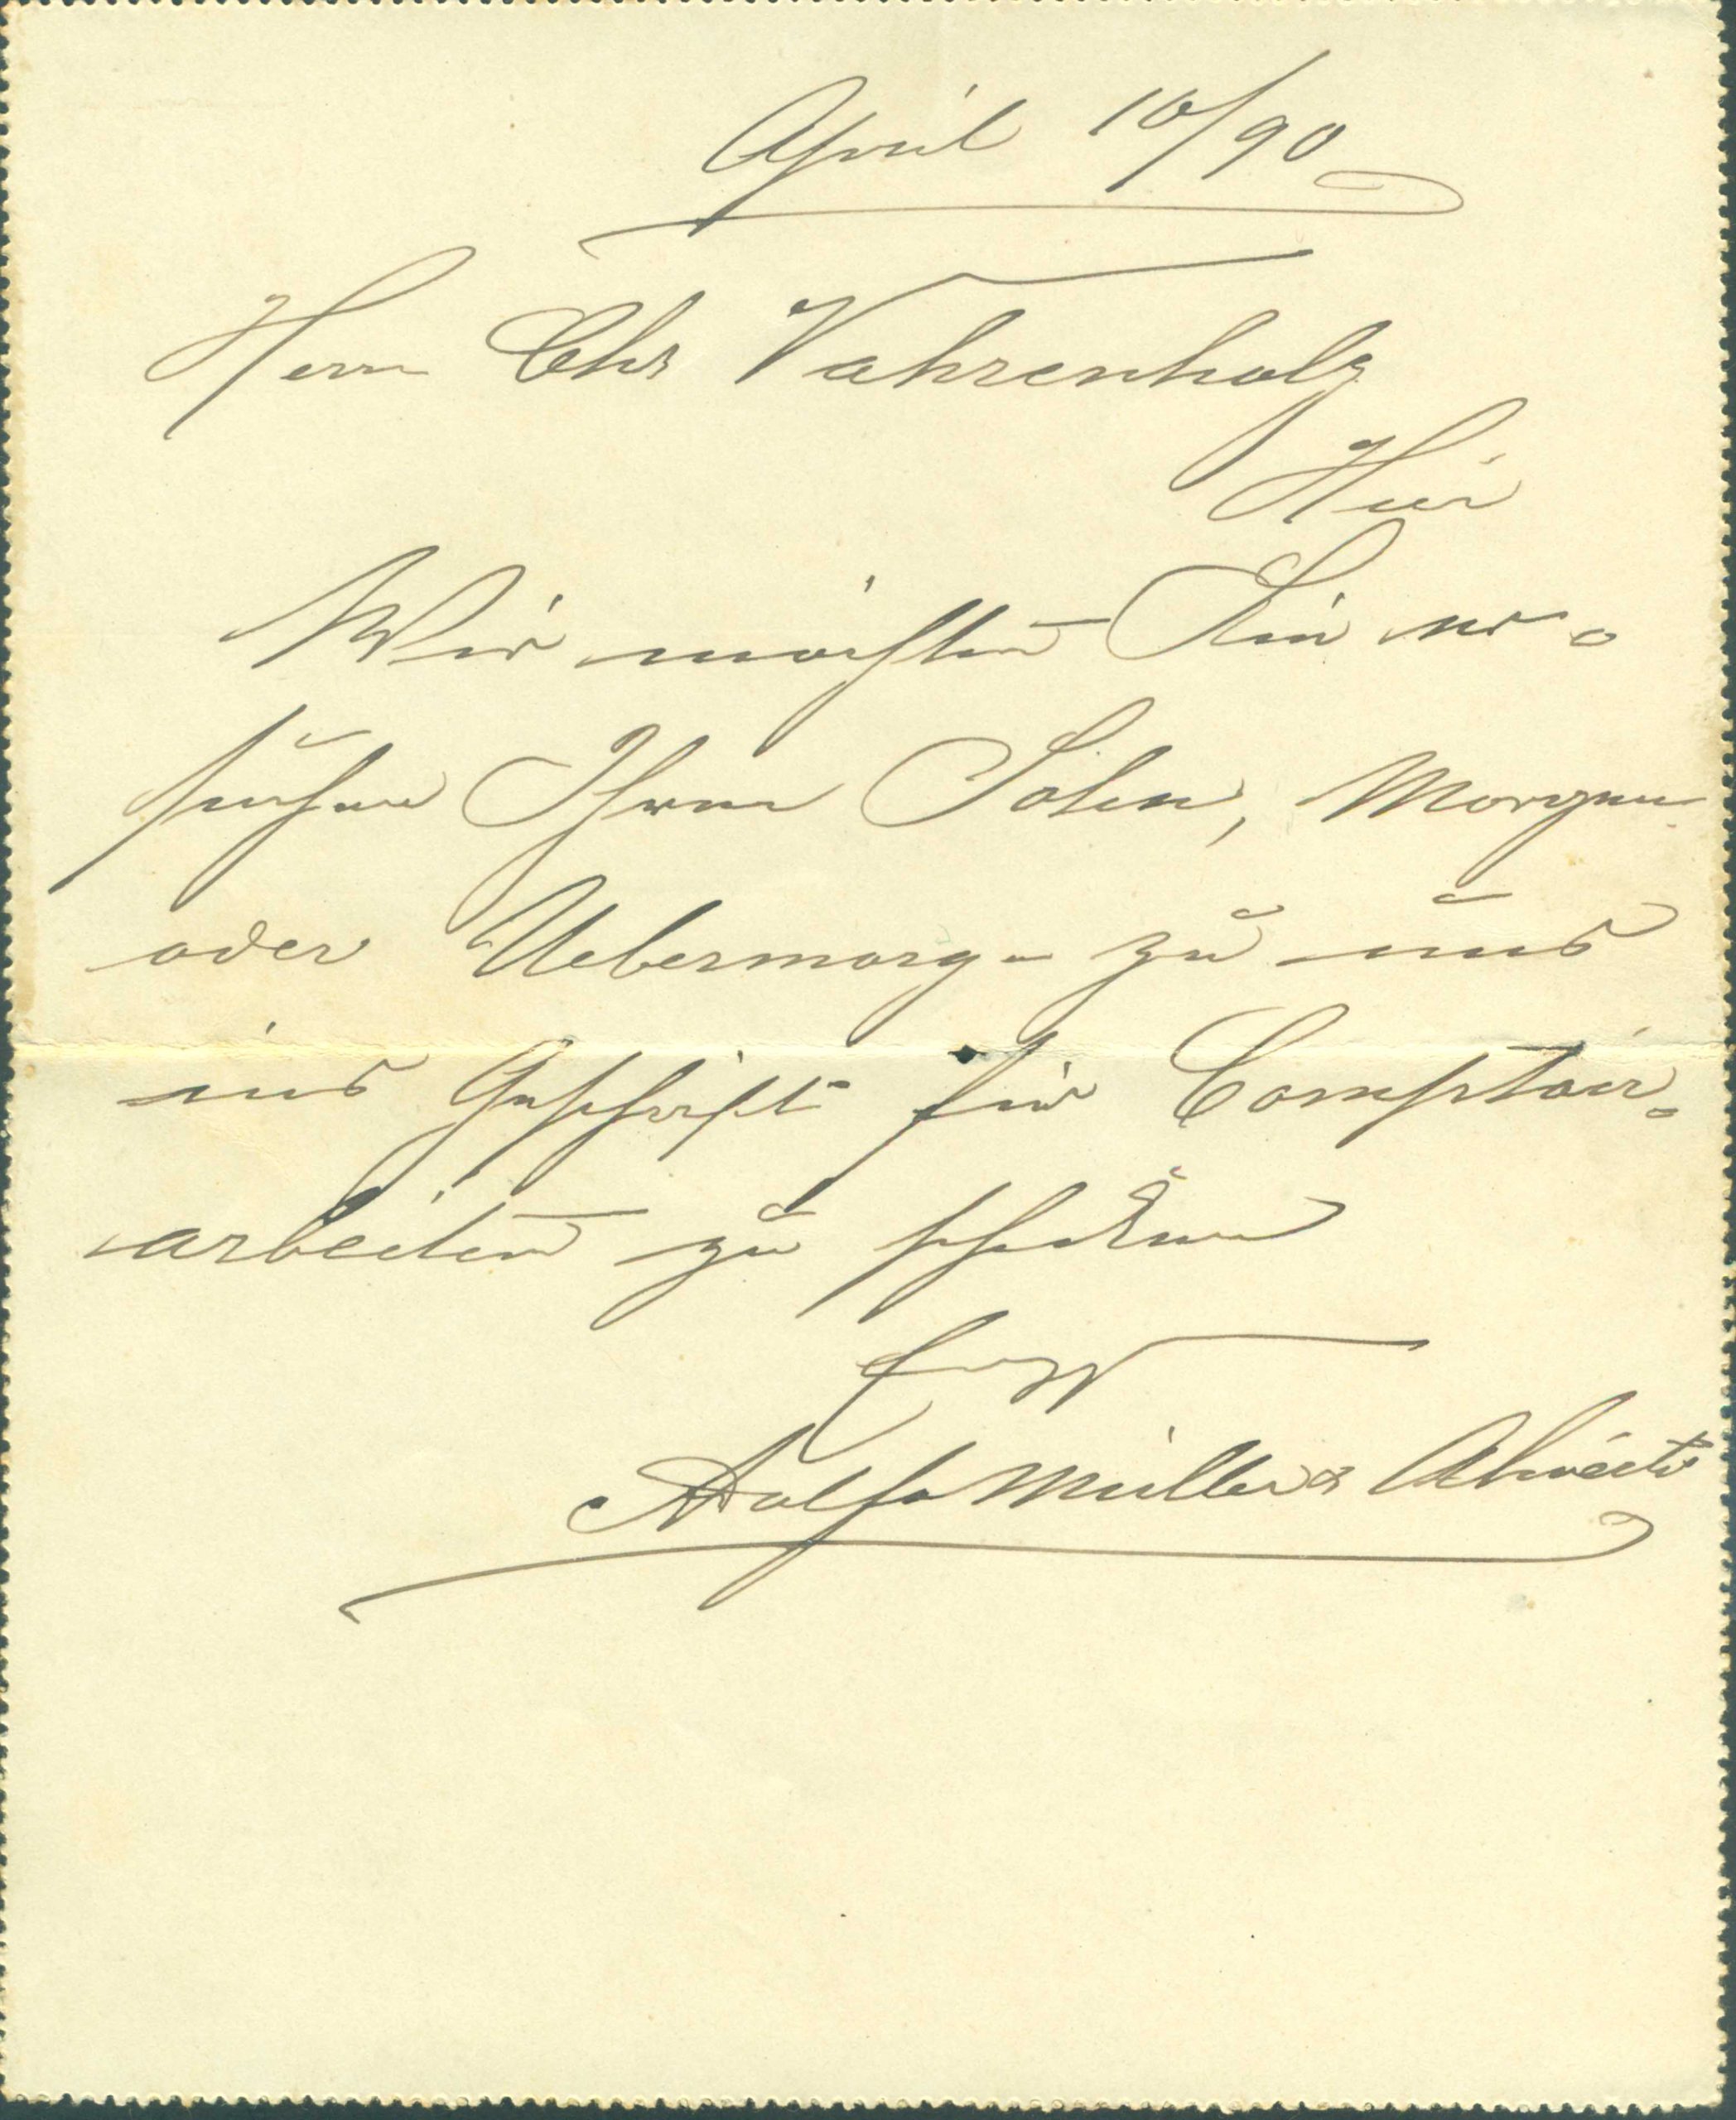 April 10/90
Herrn Chr Vahrenholz
Hier
Wir möchten Sie er-
suchen Ihren Sohn, Morgen
oder Uebermorgen zu uns
ins Geschäft für Comptoir-
arbeiten zu schicken
Adolf Müller &